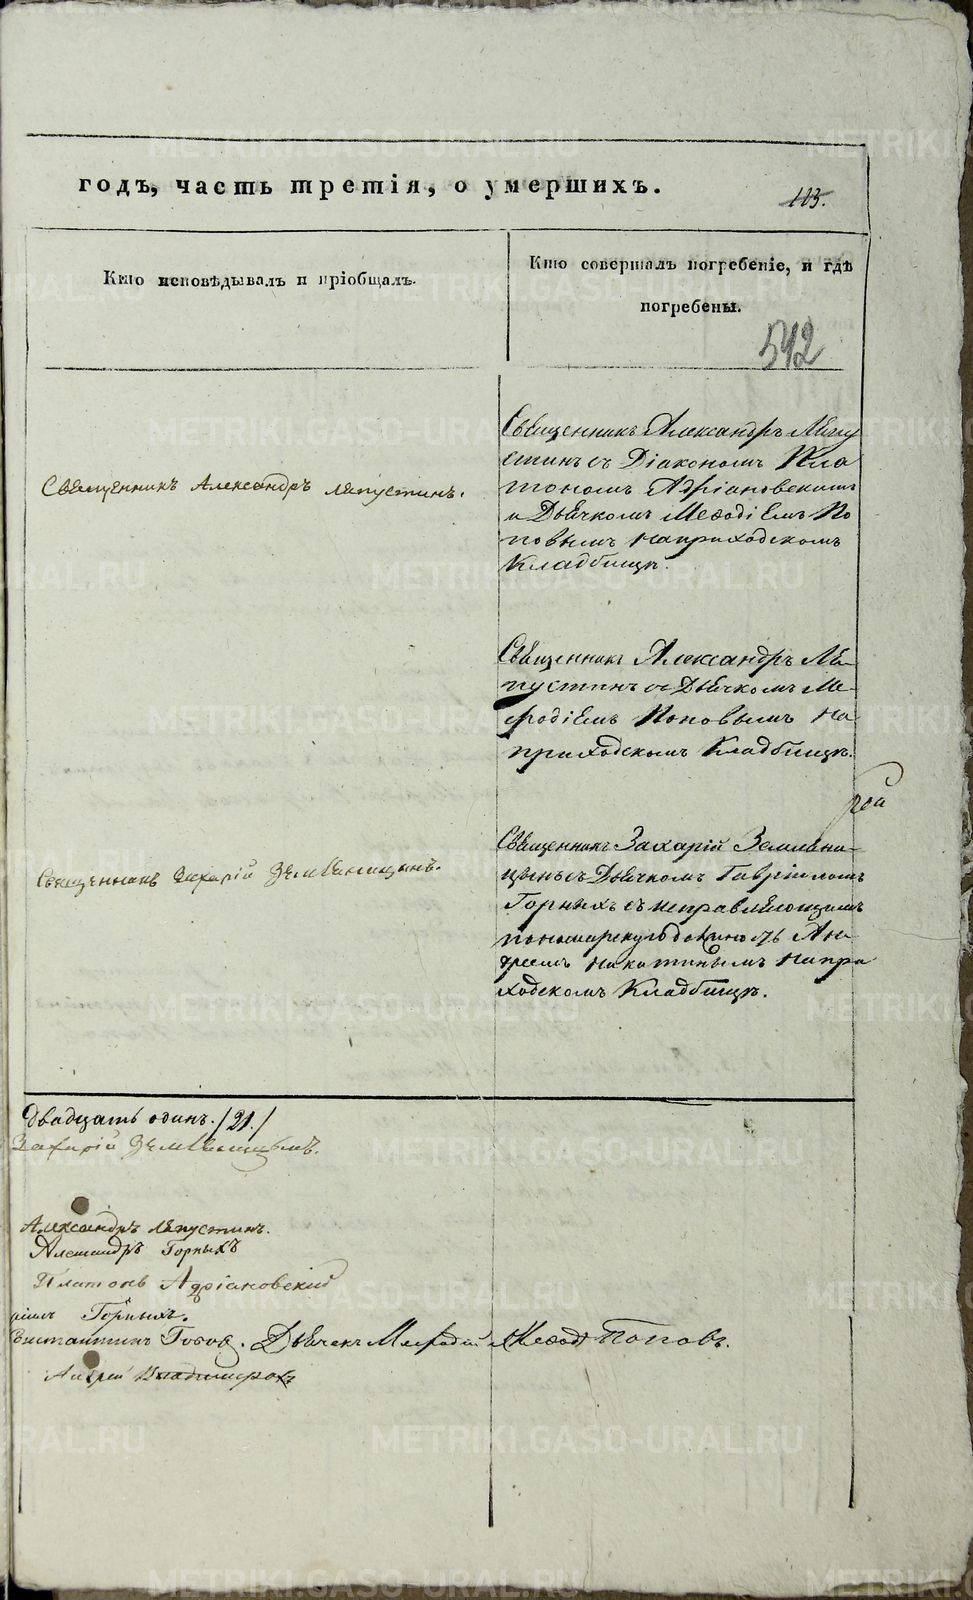 годъ, часть третія, о умершихъ.
113.
Кто исповѣдывалъ и пріобщалъ.
Кто совершалъ погребеніе, и гдѣ
погребены.
542
Священникъ Александръ Ляпустинъ.
Священникъ Александръ Ляпу
стинъ съ Діакономъ Пла
тономъ Адріановскимъ
и Дьячкомъ Меѳодіемъ По
повымъ на приходскомъ
Кладбищѣ.
Священникъ Александръ Ля-
пустинъ съ Дьячкомъ Ме-
фодіемъ Поповымъ на
приходскомъ Кладбищѣ.
Священникъ Захарій Земляницынъ.
Священникъ Захарій Земляни-
цынъ съ Дьячкомъ Гавріиломъ
Горныхъ съ исправляющимъ
пономарскую должность Ан
дреемъ на при
ходскомъ Кладбищѣ.
Двадцать одинъ. /21./
Захарій Земляницынъ.
Александръ Ляпустинъ.
Александръ Горныхъ
Платонъ Адріановскій
Горныхъ.
Дьячекъ Мефодій Меѳод Поповъ.
Андрей
METRIKI.GASO-URAL.RU